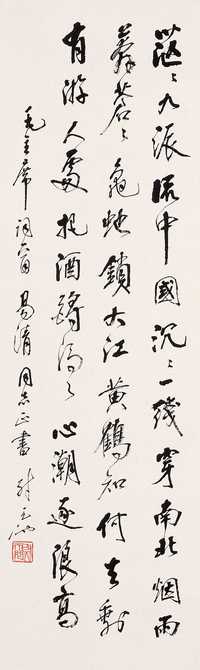 茫〻九派流中國沉〻一线穿南北烟雨
莽蒼〻龜蛇鎖大江黄鶴知何去剩
有游人處把酒酹滔〻心潮逐浪高
毛主席词菩 易清同志正書